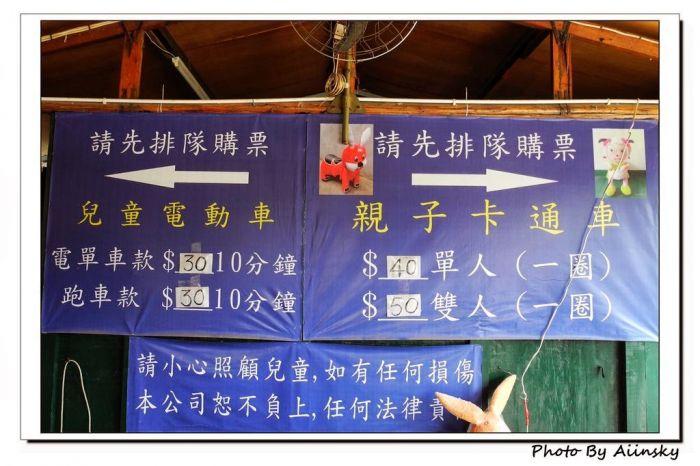 請先排隊購票
兒童電動車
電單車款 $30 10分鐘
跑車款 $30 10分鐘
請先排隊購票
親子卡通車
$40 單人（一圈）
$50 雙人（一圈）
請小心照顧兒童,如有任何損傷
本公司恕不負上,任何法律責
Photo By Aiinsky